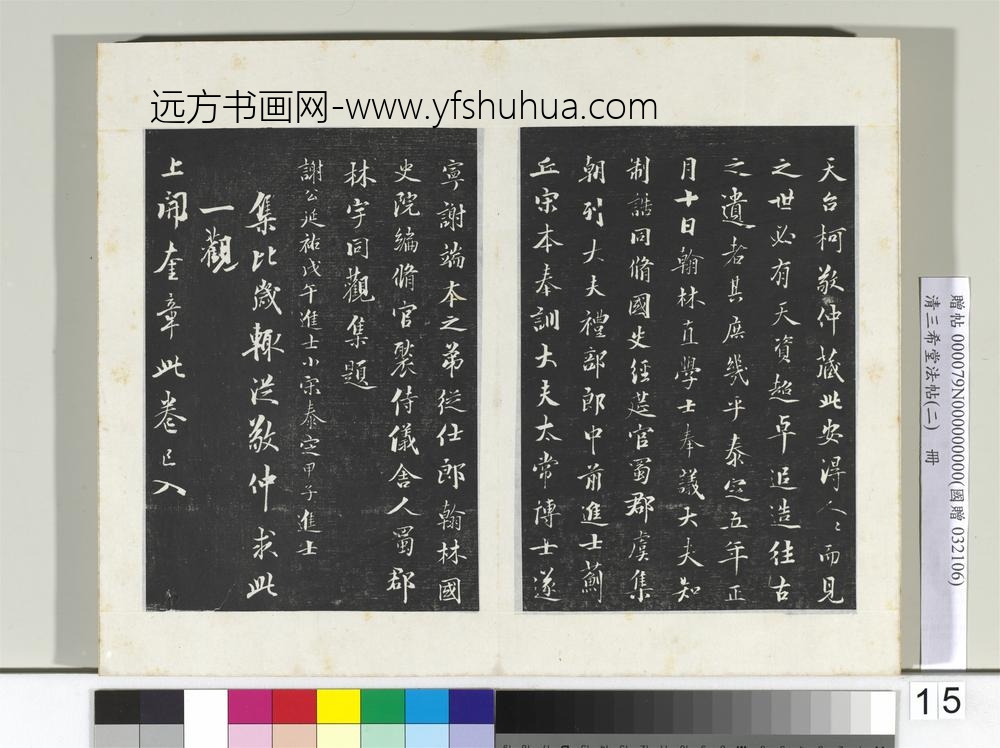 远方书画网-www.yfshuhua.com
天台柯敬仲藏此安得人人而見
之世必有天資超卓追造往古
之遺者其庶幾乎泰定五年正
月十日翰林直學士奉議大夫知
制誥同脩國史經筵官蜀郡虞集
朝列大夫禮部郎中前進士薊
丘宋本奉訓大夫太常博士遂
寧謝端本之弟從仕郎翰林國
史院編脩官褧侍儀舍人蜀郡
林宇同觀集題
謝公延祐戊午進士小宋泰定甲子進士
集比歲輒從敬仲求此
一觀
上開奎章此卷已入
贈帖 000079N000000000(國贈 032106)
清三希堂法帖(二) 冊
15